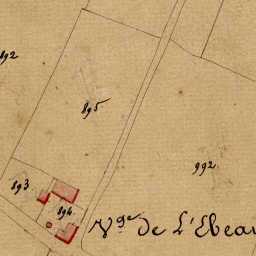 892
895
992
893
894
Vge de L'Ebeau